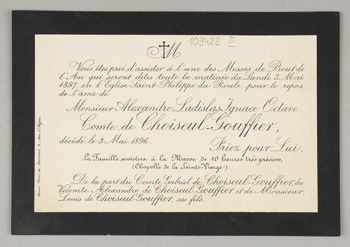 109483 III
M
Vous êtes prié d'assister à l'une des Messes de Bout de
l'An qui seront dites toute la matinée du Lundi 3 Mai
1897, en l'Église Saint-Philippe du Roule, pour le repos
de l'âme de
Monsieur Alexandre Ladislas Ignace Octave
Comte de Choiseul-Gouffier,
décédé le 3 Mai 1896.
Priez pour Lui.
La Famille assistera à la Messe de 10 heures très précises,
(Chapelle de la Sainte-Vierge).
De la part du Comte Gabriel de Choiseul-Gouffier, du
Vicomte Alexandre de Choiseul-Gouffier et de Monsieur
Louis de Choiseul-Gouffier, ses fils.